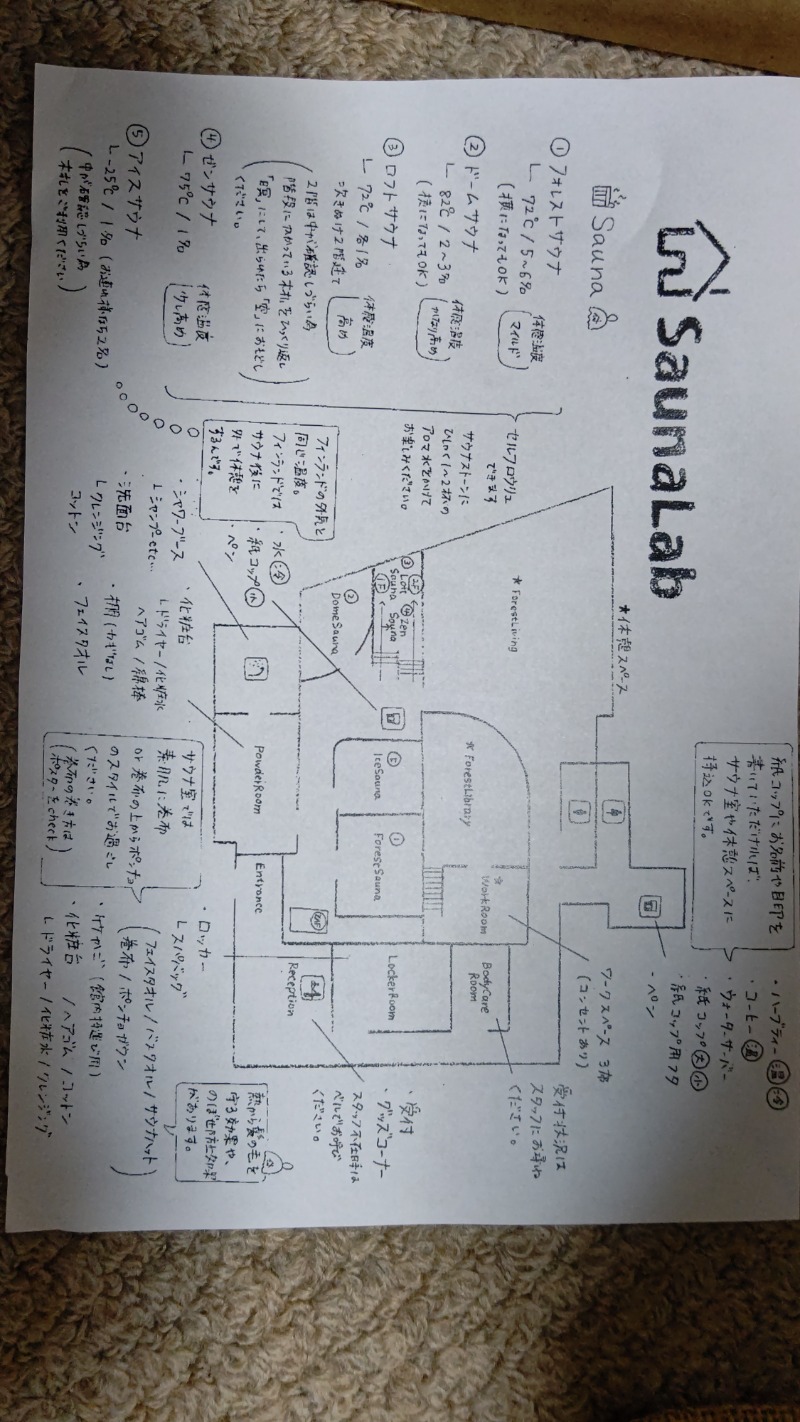 SaunaLab
Sauna
① フォレストサウナ
└ 72℃ / 5~6%
(横になってもOK)
体感温度
マイルド
② ドームサウナ
└ 82℃ / 2~3%
(横になってもOK)
体感温度
かなり高め
③ ロフトサウナ
└ 72℃ / 1%
吹きぬけ2階建て
体感温度
高め
2階は中が確認しづらい為
階段にかかっている木札をひっくり返し
にして、出られたら「空」におもどし
ください。
④ ゼンサウナ
└ 75℃ / 1%
体感温度
少し高め
⑤ アイスサウナ
└ -25℃ / 1%(お連れ様なら2名)
(中が確認しづらい為
木札をご利用ください)
セルフロウリュ
できます
サウナストーンに
ひしゃく1~2杯の
アロマ水をかけて
お楽しみください。
フィンランドの外気と
同じ温度。
フィンランドでは
サウナ後に
外で休憩を
するんです。
・水 冷
・紙コップ 小
・ペン
・シャワーブース
└ シャンプーetc...
・洗面台
└ クレンジング
コットン
・化粧台
└ ドライヤー/化粧水
ヘアゴム/綿棒
・棚(カギなし)
・フェイスタオル
★休憩スペース
★ForestLiving
③ Loft Sauna
2F
1F
④ Zen Sauna
② DomeSauna
★ForestLibrary
★WorkRoom
⑤ IceSauna
① ForestSauna
PowderRoom
Entrance
Reception
LockerRoom
BodyCare
Room
紙コップにお名前や目印を
書いていただければ、
サウナ室や休憩スペースに
持込OKです。
・ハーブティー 温 冷
・コーヒー 温
・ウォーターサーバー
・紙コップ 大 小
・紙コップ用フタ
・ペン
ワークスペース 3席
(コンセントあり)
受付状況は
スタッフにお尋ね
ください。
受付
・グッズコーナー
スタッフ不在時は
ベルでお呼び
ください。
サウナ室では
素肌に巻布
or 巻布の上からポンチョ
のスタイルでお過ごし
ください。
(巻布の巻き方は
ポスターをcheck)
・ロッカー
└ スパバッグ
(フェイスタオル/バスタオル/サウナハット
巻布/ポンチョガウン)
・かご(館内持運び用)
・化粧台 /ヘアゴム/コットン
└ ドライヤー/化粧水/クレンジング
熱から髪の毛を
守る効果や、
のぼせ防止効果
があります。